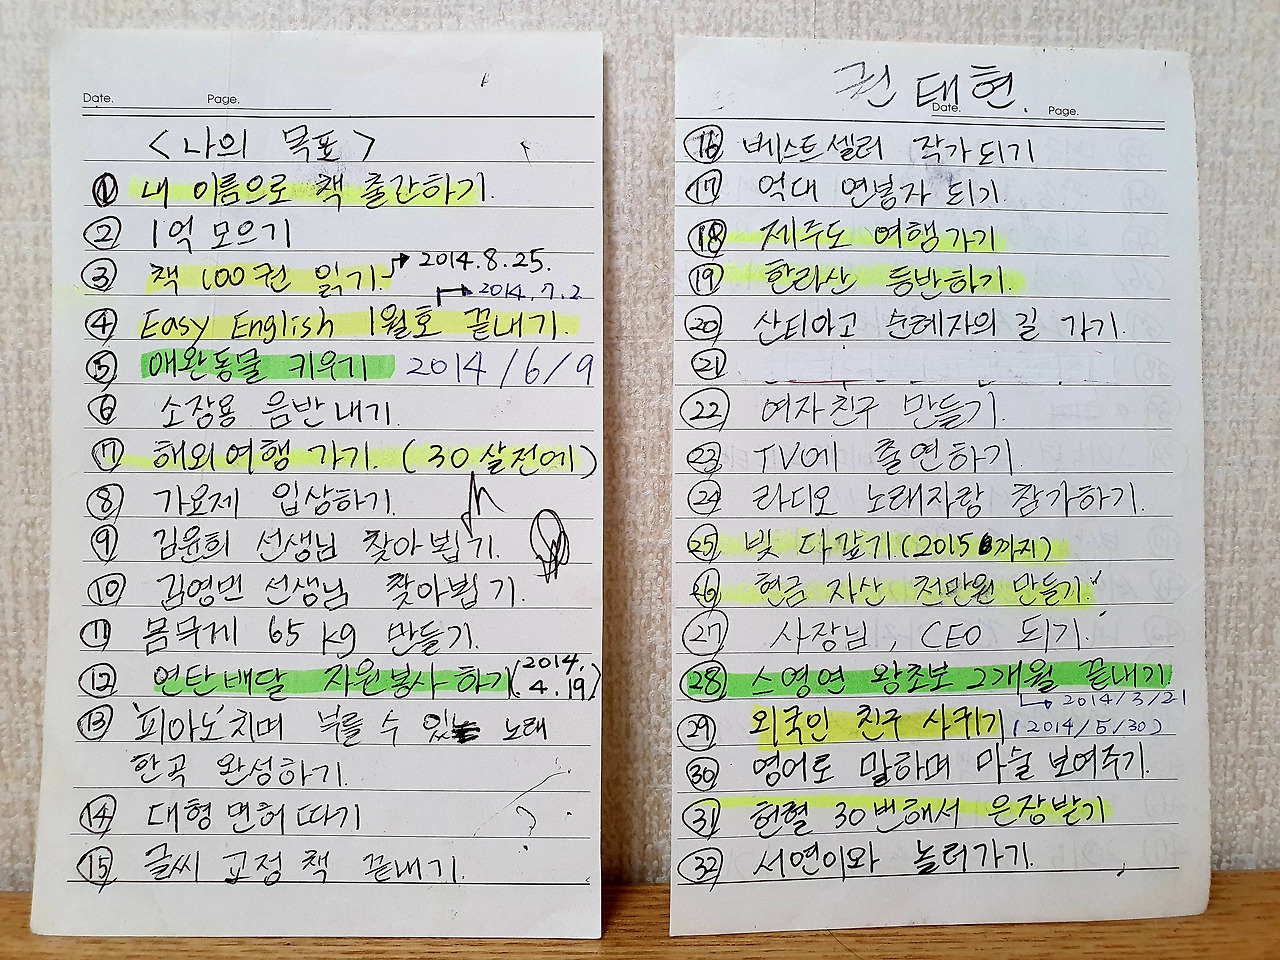 Date. Page.
<나의 목표>
① 내 이름으로 책 출간하기.
② 1억 모으기
③ 책 100권 읽기. → 2014.8.25.
→ 2014.7.2
④ Easy English 1월호 끝내기.
⑤ 애완동물 키우기 2014/6/9
⑥ 소장용 음반내기.
⑦ 해외여행 가기. (30살전에)
⑧ 가요제 입상하기.
⑨ 김윤희 선생님 찾아뵙기.
⑩ 김영민 선생님 찾아뵙기.
⑪ 몸무게 65kg 만들기.
⑫ 연탄배달 자원봉사하기(2014.
4.19)
⑬ '피아노'치며 부를 수 있는 노래
한곡 완성하기.
⑭ 대형면허따기
⑮ 글씨 교정 책 끝내기.
권태현.
Date. Page.
⑯ 베스트셀러 작가되기
⑰ 억대 연봉자 되기.
⑱ 제주도 여행가기
⑲ 한라산 등반하기.
⑳ 산티아고 순례자의 길 가기.
㉑
㉒ 여자친구 만들기.
㉓ TV에 출연하기.
㉔ 라디오 노래자랑 참가하기.
㉕ 빚 다갚기(2015 까지)
현금 자산 천만원 만들기.
㉗ 사장님, CEO 되기.
㉘ 스영연 왕초보 2개월 끝내기.
→ 2014/3/21
㉙ 외국인 친구 사귀기 (2014/5/30)
㉚ 영어로 말하며 마술 보여주기.
㉛ 헌혈 30번해서 은장받기
㉜ 서연이와 놀러가기.